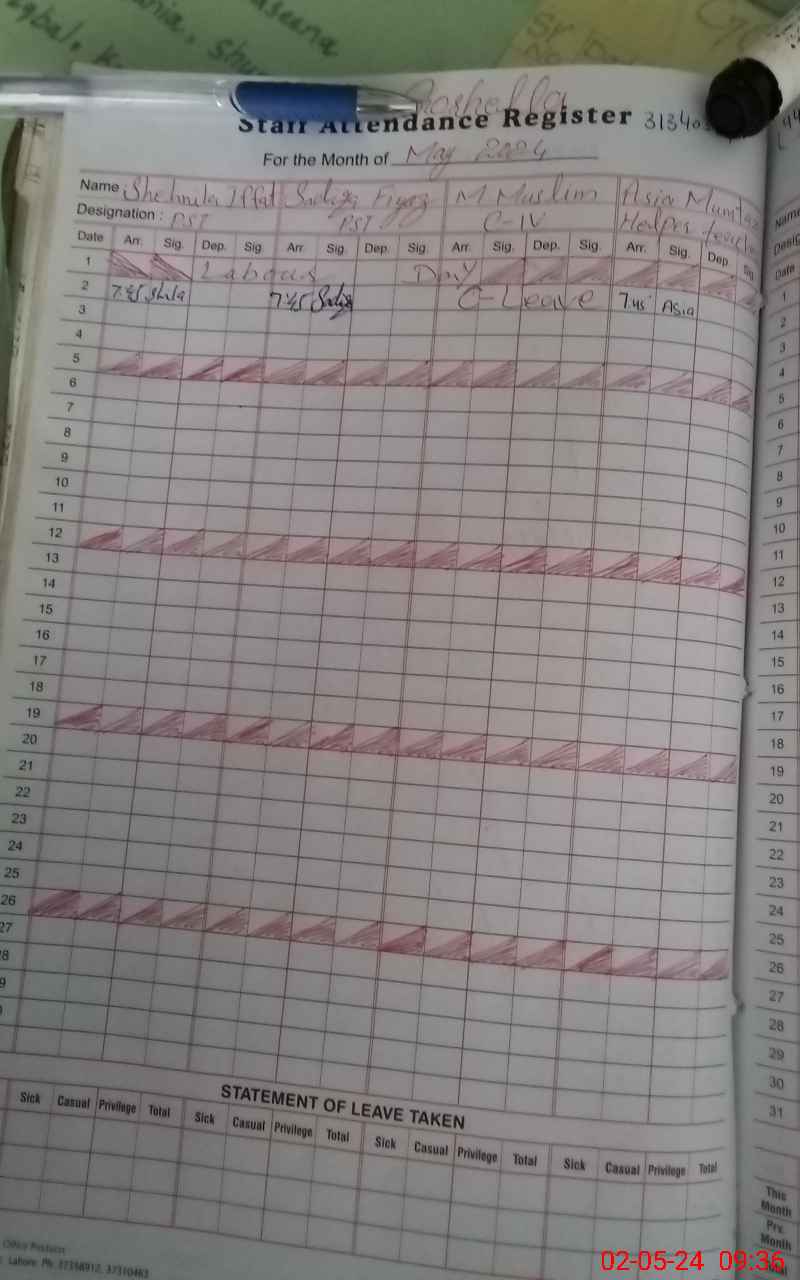 Staff Attendance Register
For the Month of May 2024
Name Shehnila Iffat Sadaza Fiyaz M. Muslim Asia Mumtaz
Designation : PST PST C-IV Helper teacher
Date Arr. Sig. Dep. Sig. Arr. Sig. Dep. Sig. Arr. Sig. Dep. Sig. Arr. Sig. Dep. Sig.
1 Labour Day
2 7:45 7:45 C-Leave 7:45 Asia
3
4
5
6
7
8
9
10
11
12
13
14
15
16
17
18
19
20
21
22
23
24
25
26
27
8
9
STATEMENT OF LEAVE TAKEN
Sick Casual Privilege Total Sick Casual Privilege Total Sick Casual Privilege Total Sick Casual Privilege Total
Office Products
Lahore: Ph: 37358912, 37310463
Name
Date
1
2
3
4
5
6
7
8
9
10
11
12
13
14
15
16
17
18
19
20
21
22
23
24
25
26
27
28
29
30
31
This
Month
Prv.
Month
Total
02-05-24 09:36